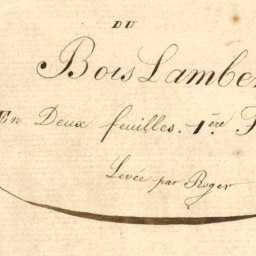 DU
Bois Lambe
En Deux feuilles. 1ère
Levée par Roger